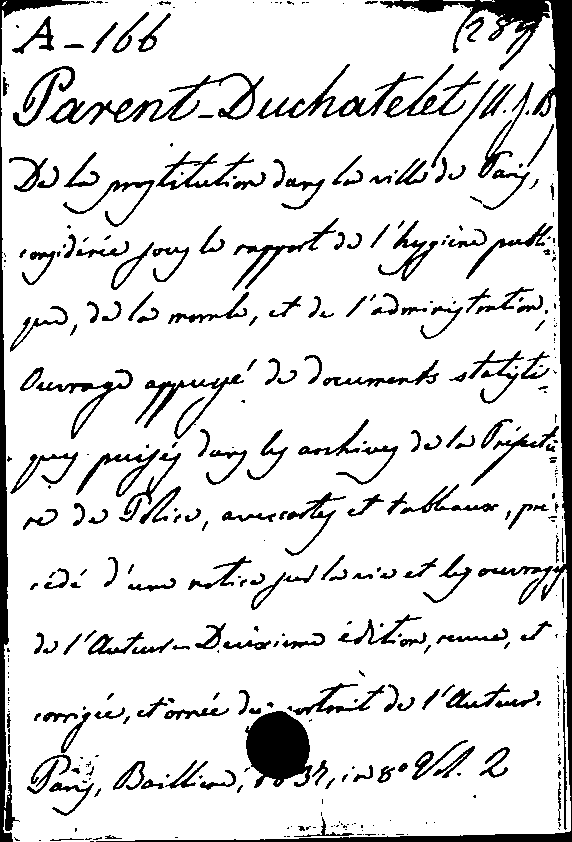 A-166 (289)
Parent-Duchatelet (A. J. B)
De la prostitution dans la ville de Paris,
considérée sous le rapport de l'hygiène publi-
que, de la morale, et de l'administration;
Ouvrage appuyé de documents statisti-
ques puisés dans les archives de la Préfectu-
re de Police, avec cartes et tableaux, pré-
cédé d'une notice sur la vie et les ouvrages
de l'Auteur - Deuxieme édition, revue, et
corrigée, et ornée du portrait de l'Auteur.
Paris, Baillière, 1837, in 8º Vol. 2